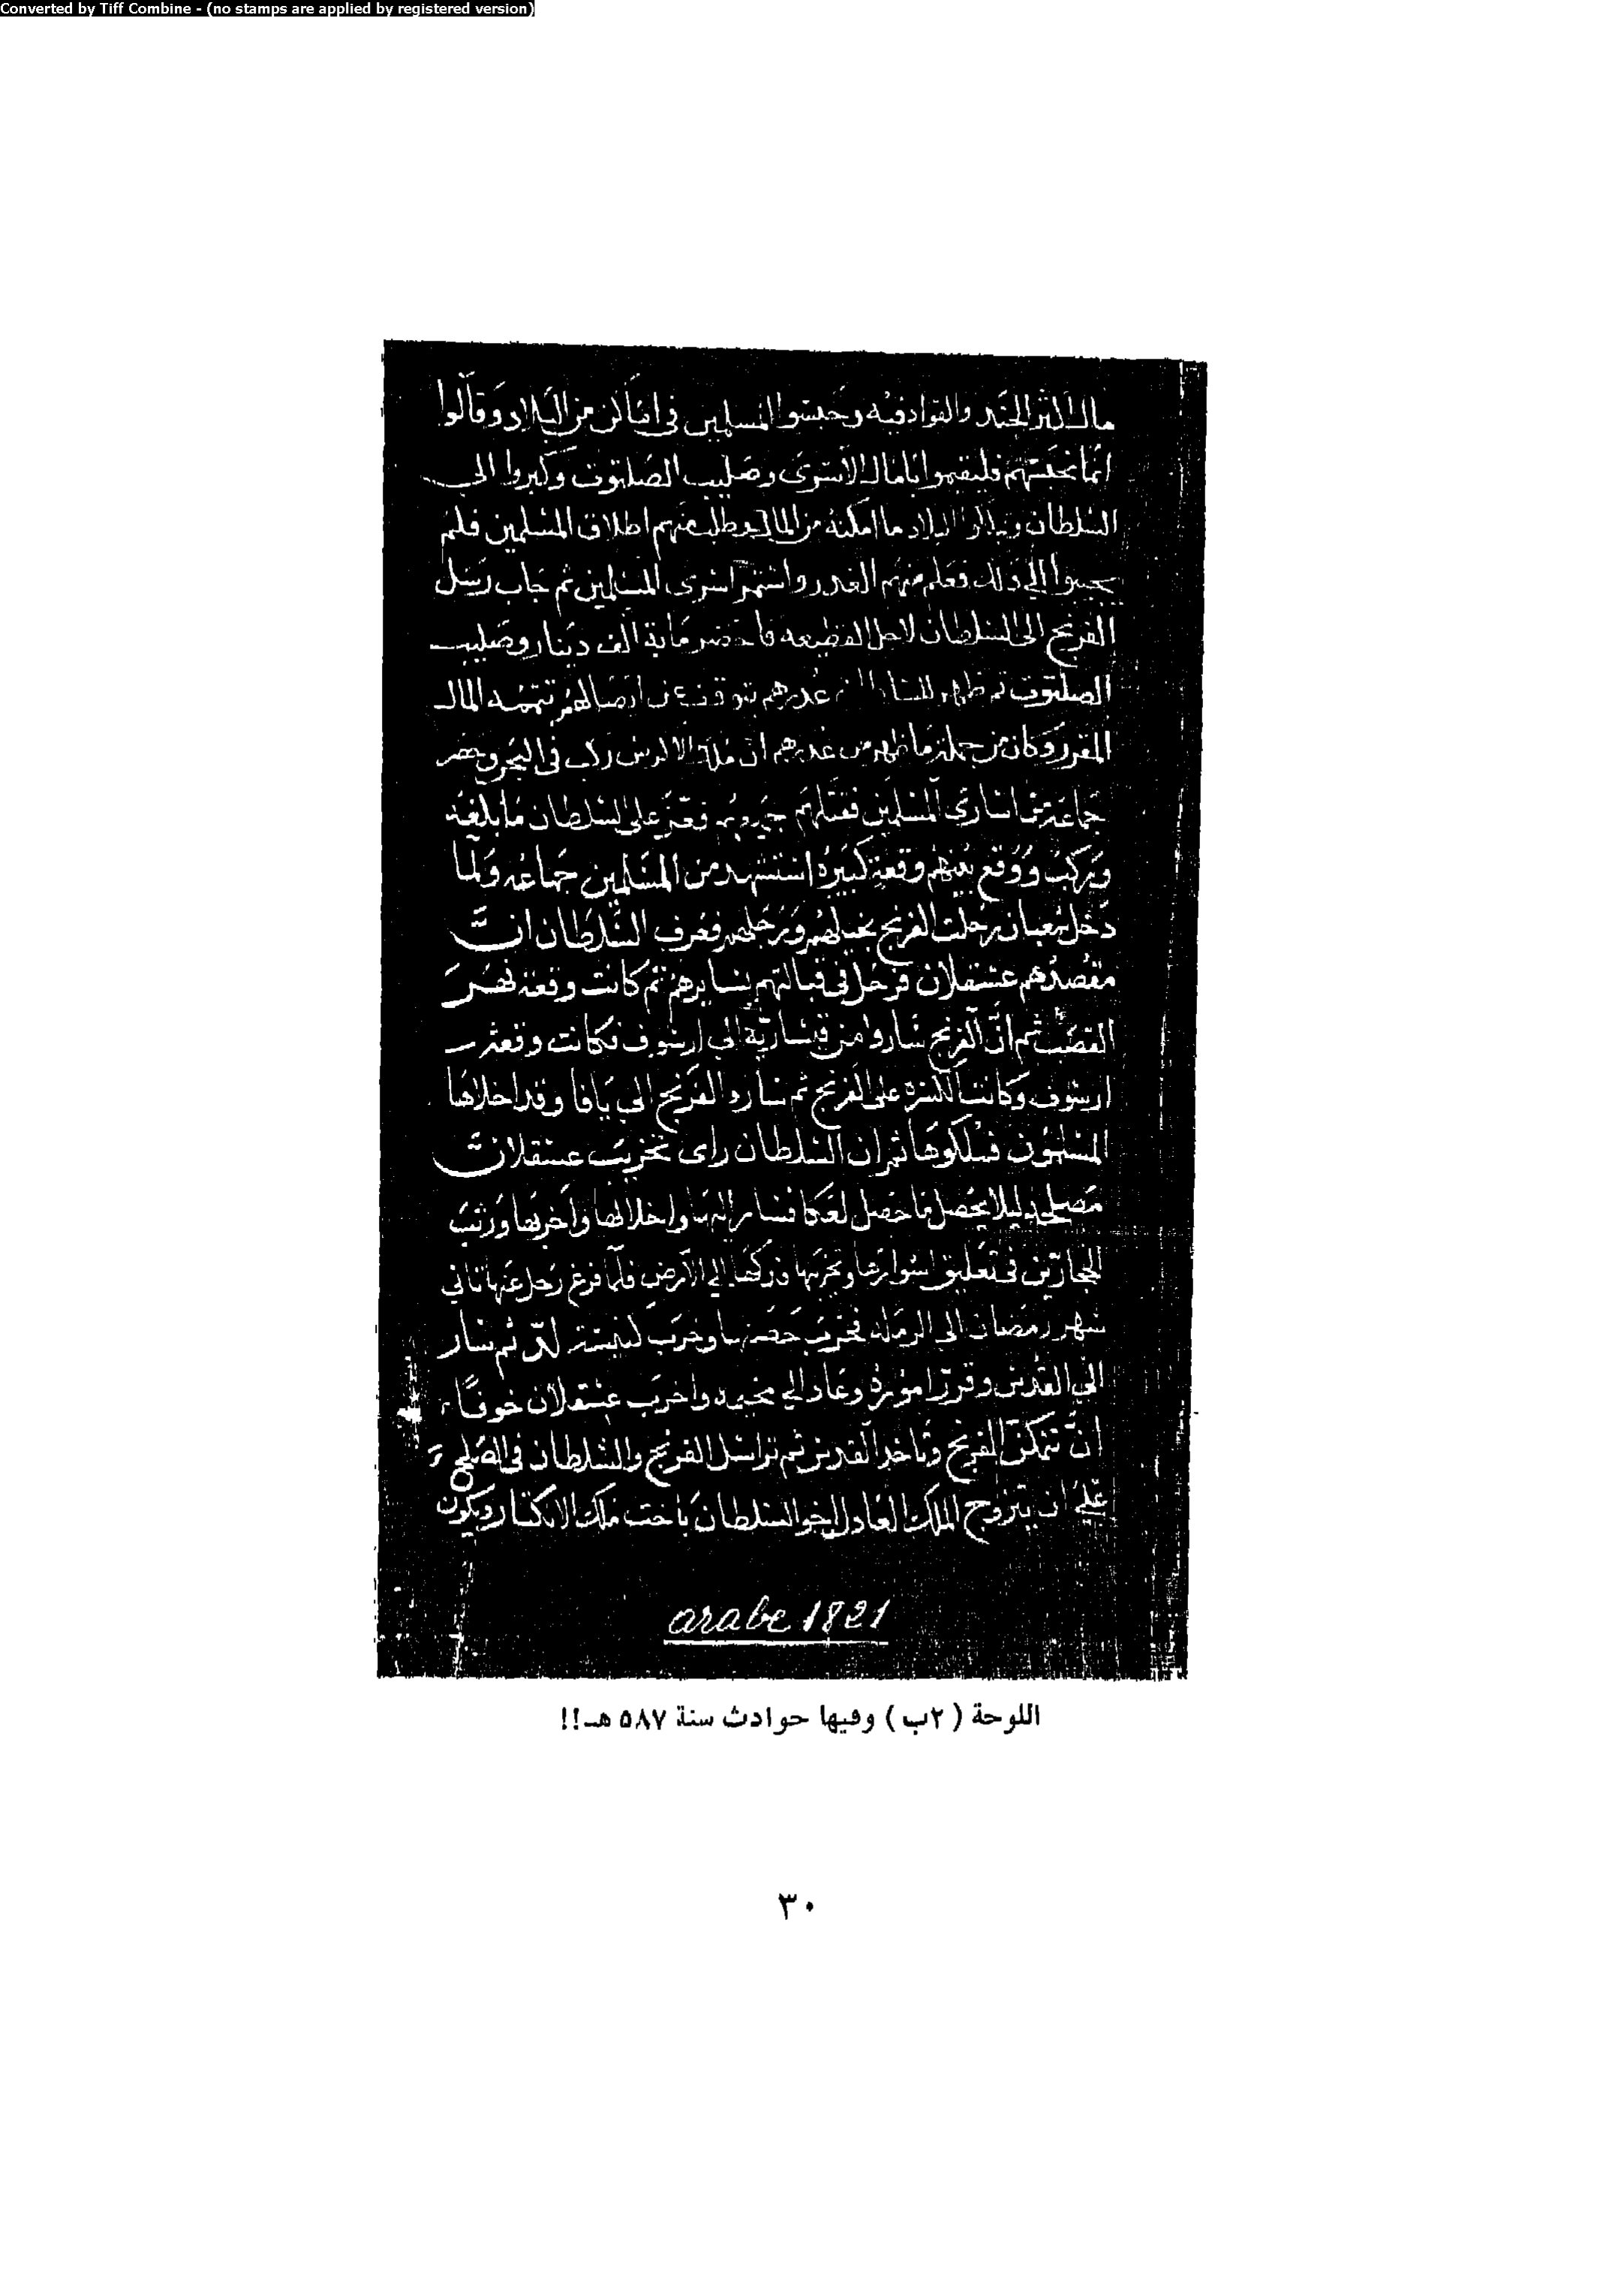 Converted by Tiff Combine - (no stamps are applied by registered version)
مال اكثر الجند والقواد فيه وحبسوا المسلمين في اماكن من البلاد وقالوا
انما نحبسهم فليقيموا بالمال الاسرى وصليب الصلبوت وكبروا الى
السلطان ما امكنه من المال وطلب منهم اطلاق المسلمين فلم
يجيبوا الي ذلك فعلم منهم الغدر واستمر اسرى المسلمين ثم جاب رسل
الفرنج الى السلطان لاجل القطيعه فاحضر ماية الف دينار وصليب
الصلبوت ثم ظهر للسلطان غدرهم فتوقف عن ايصالهم تتمه المال
المقرر وكان من جملة ما ظهر من غدرهم ان ملك ركب في البحر
جماعة من اسارى المسلمين فقتلهم فعز على السلطان ما بلغه
وركب ووقع بينهم وقعة كبيرة استشهد من المسلمين جماعه ولما
دخل شعبان رحلت الفرنج بخيلهم ورجلهم فعرف السلطان ان
مقصدهم عسقلان فرحل في قبالتهم يسايرهم ثم كانت وقعة نهر
القصب ثم ان الفرنج ساروا من قيسارية الى ارسوف فكانت وقعة
ارسوف وكانت الكسرة على الفرنج ثم سارو الفرنج الى يافا وقد اخلاها
المسلمون فملكوها ثم ان السلطان راى تخريب عسقلان
مصلحة ليلا يحصل ما حصل لعكا فسار اليها واخلاها واخربها ورتب
الحجارين في تعليق اسوارها وتخريبها ودكها الي الارض فلما فرغ رحل عنها ثاني
شهر رمضان الى الرملة فخرب حصنها وخرب كنيسة لد ثم سار
الى القدس وقرر اموره وعاد الي مخيمه واخرب عسقلان خوفا
ان تتمكن الفرنج وتاخذ القدس ثم تراسل الفرنج والسلطان في الصلح
على ان يتزوج الملك العادل اخو السلطان باخت ملك الانكتار ويكون
arabe 1821
اللوحة (٢ب) وفيها حوادث سنة ٥٨٧ هـ!!
٣٠